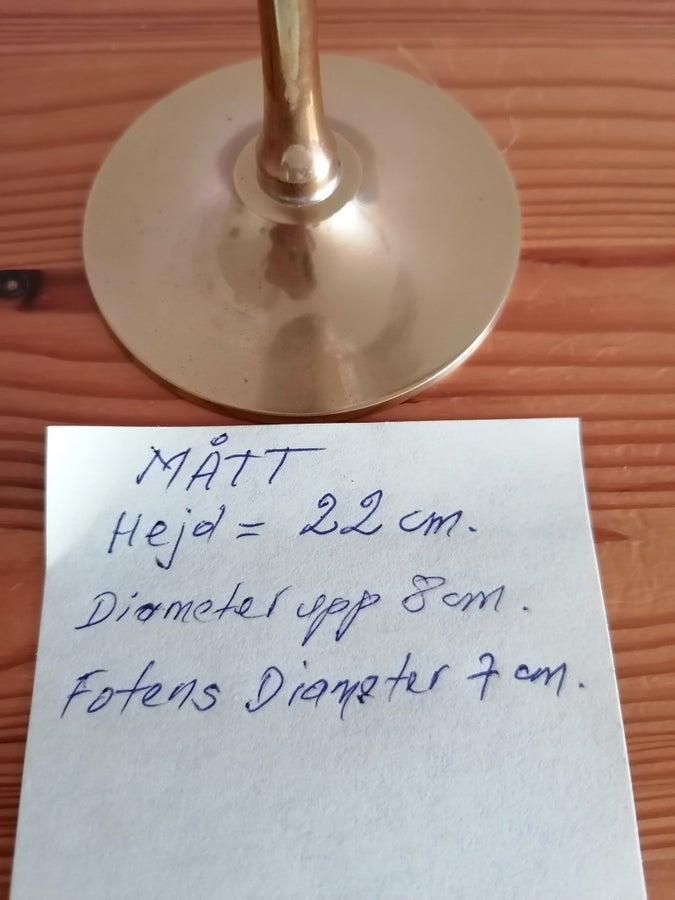 MÅTT
Hejd = 22 cm.
Diameter upp 8 cm.
Fotens Diameter 7 cm.